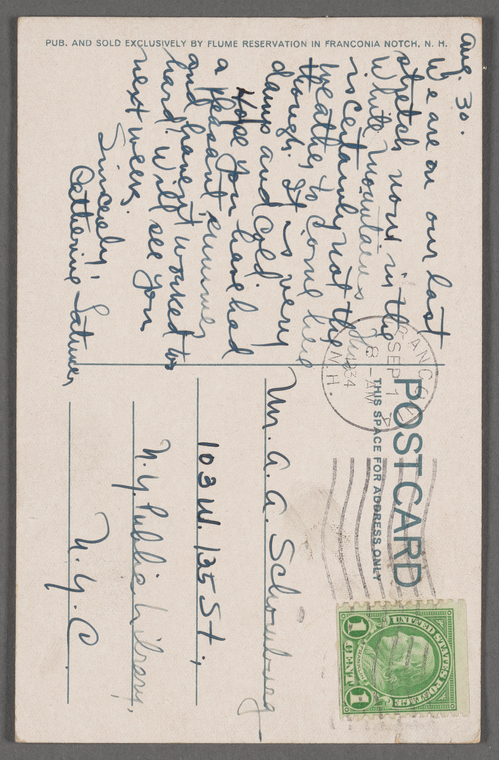 PUB. AND SOLD EXCLUSIVELY BY FLUME RESERVATION IN FRANCONIA NOTCH, N. H.
Aug. 30.
We are on our last
stretch now in the
White Mountains
is certainly not the
weather to come here
though. It is very
damp and cold.
Hope you have had
a pleasant summer
and haven't worked too
hard. Will see you
next week.
Sincerely,
Catherine Latimer
FRANCONIA
SEP 1
8 AM
1934
N.H.
POST CARD
THIS SPACE FOR ADDRESS ONLY
Mr. A. A. Schomburg
103 W. 135 St.,
N.Y. Public Library,
N.Y.C.
UNITED STATES POSTAGE
1 CENT 1